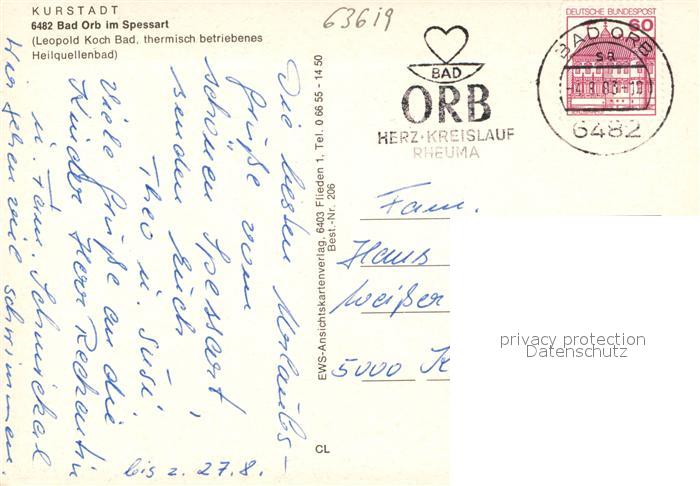 KURSTADT
6482 Bad Orb im Spessart
(Leopold Koch Bad, thermisch betriebenes
Heilquellenbad)
63619
DEUTSCHE BUNDESPOST
60
BAD ORB
sa
-4.8.83-10
6482
BAD
ORB
HERZ-KREISLAUF
RHEUMA
Die besten Urlaubs-
grüße vom
schönen Spessart
senden Euch
Theo u. Susi
Viele Grüße an die
Kinder, Herr
u. Fam.
Hier gehen wir schwimmen.
bis z. 27.8.
EWS-Ansichtskartenverlag, 6403 Flieden 1, Tel. 0 66 55 - 14 50
Best.-Nr. 206
CL
Fam.
Hans
Weißer
5000 K
privacy protection
Datenschutz